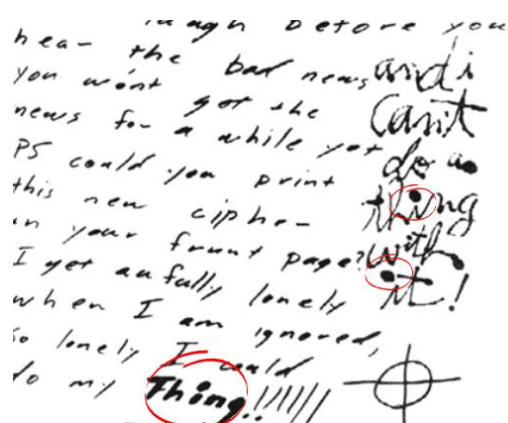 laugh before you
hear the bad news
you won't get the
news for a while yet
PS could you print
this new cipher
in your frunt page?
I get aufully lonely
when I am ignored,
so lonely I could
do my Thing!!!!!!
and i
can't
do a
thing
with
it!